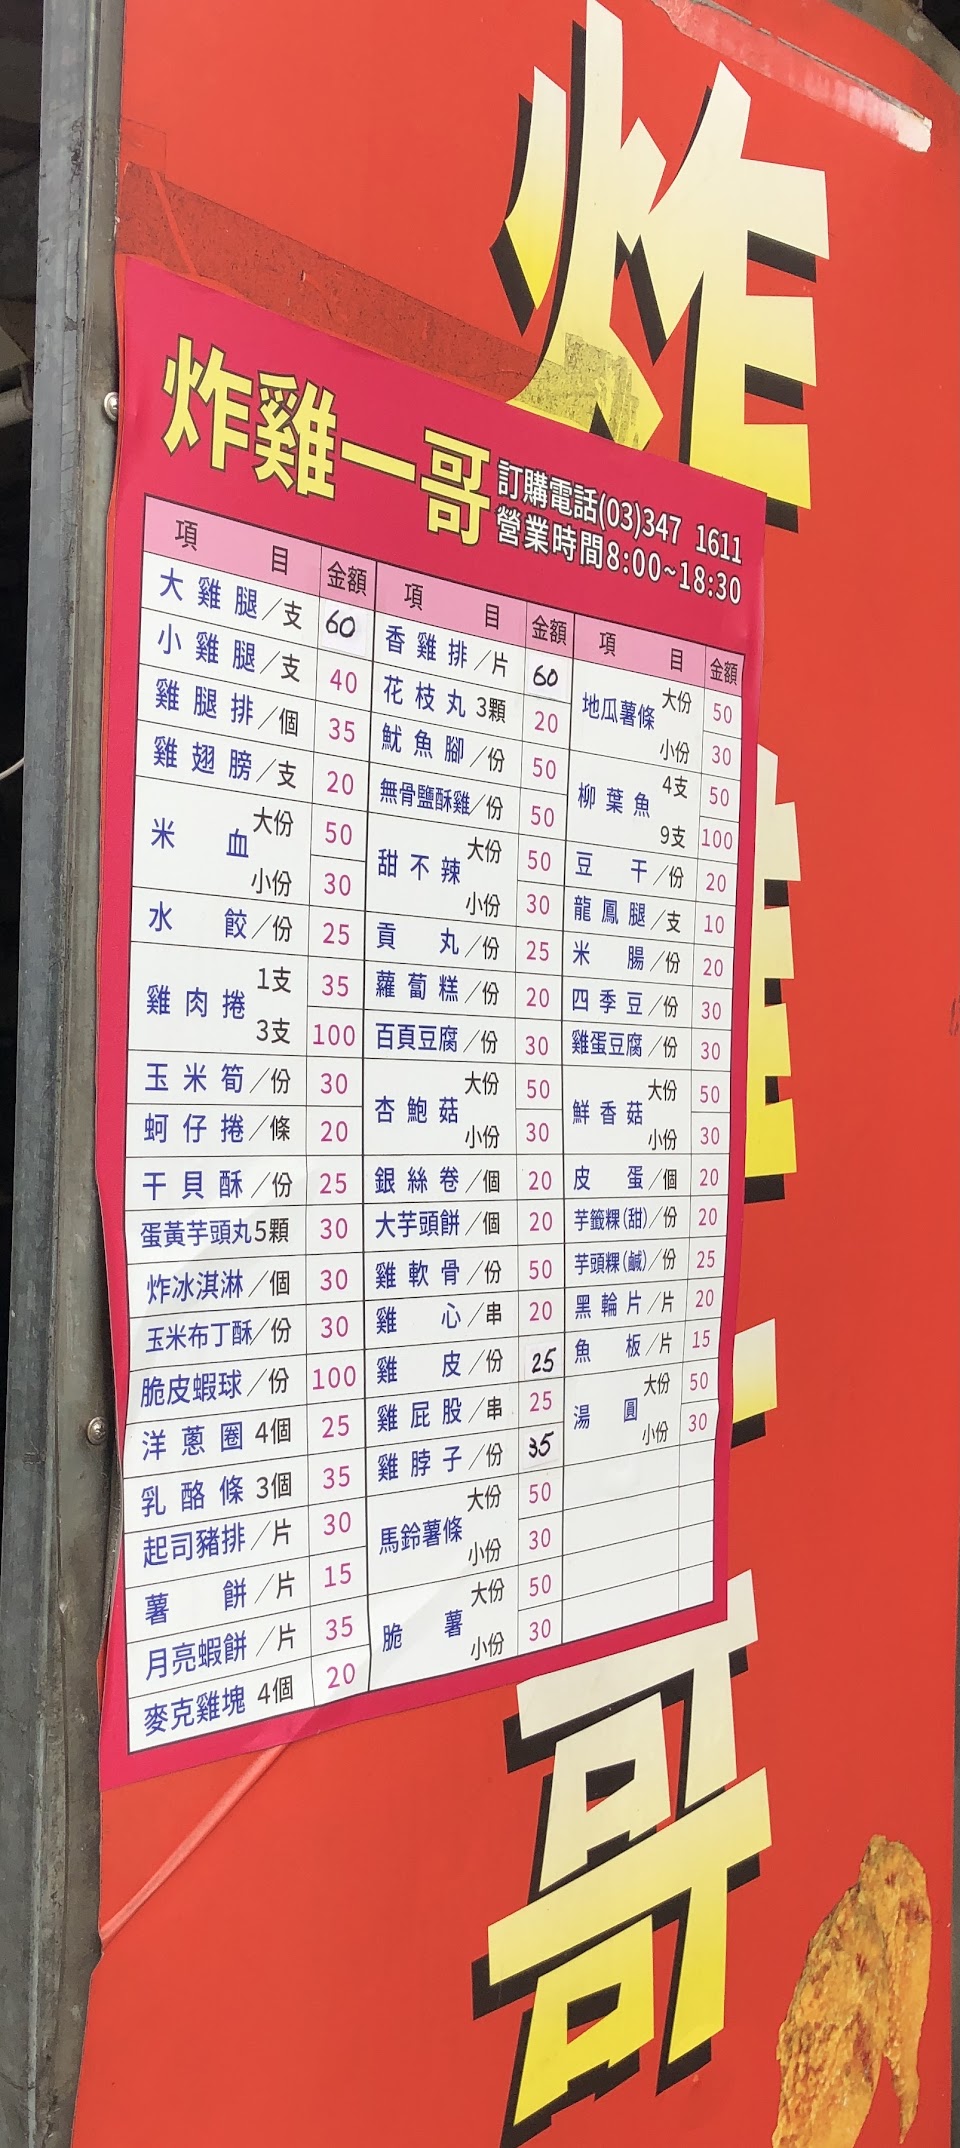 炸雞一哥
炸雞一哥
訂購電話(03)347 1611
營業時間8:00~18:30
項目 金額
大雞腿/支 60
小雞腿/支 40
雞腿排/個 35
雞翅膀/支 20
米血 大份 50
小份 30
水餃/份 25
雞肉捲 1支 35
3支 100
玉米筍/份 30
蚵仔捲/條 20
干貝酥/份 25
蛋黃芋頭丸5顆 30
炸冰淇淋/個 30
玉米布丁酥/份 30
脆皮蝦球/份 100
洋蔥圈 4個 25
乳酪條 3個 35
起司豬排/片 30
薯餅/片 15
月亮蝦餅/片 35
麥克雞塊 4個 20
項目 金額
香雞排/片 60
花枝丸 3顆 20
魷魚腳/份 50
無骨鹽酥雞/份 50
甜不辣 大份 50
小份 30
貢丸/份 25
蘿蔔糕/份 20
百頁豆腐/份 30
杏鮑菇 大份 50
小份 30
銀絲卷/個 20
大芋頭餅/個 20
雞軟骨/份 50
雞心/串 20
雞皮/份 25
雞屁股/串 25
雞脖子/份 35
馬鈴薯條 大份 50
小份 30
脆薯 大份 50
小份 30
項目 金額
地瓜薯條 大份 50
小份 30
柳葉魚 4支 50
9支 100
豆干/份 20
龍鳳腿/支 10
米腸/份 20
四季豆/份 30
雞蛋豆腐/份 30
鮮香菇 大份 50
小份 30
皮蛋/個 20
芋籤粿(甜)/份 20
芋頭粿(鹹)/份 25
黑輪片/片 20
魚板/片 15
湯圓 大份 50
小份 30